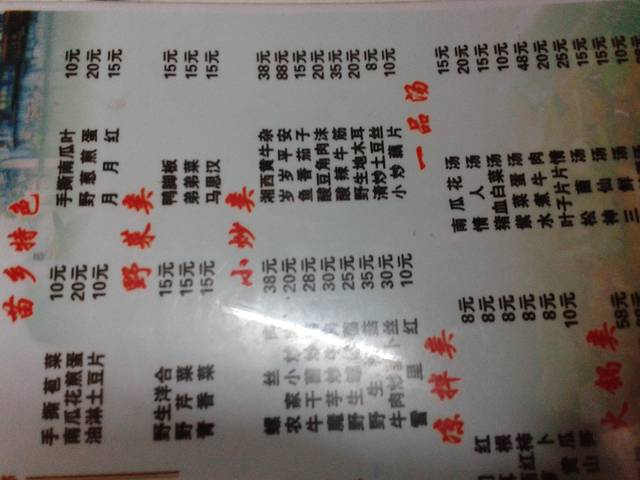 苗乡特色
手撕苞菜 10元 手撕南瓜叶 10元
南瓜花煎蛋 20元 野葱煎蛋 20元
油淋土豆片 10元 月月红 15元
野菜类
野生洋合 15元 鸭脚板 15元
野芹菜 15元 弟弟菜 15元
青香菜 15元 马思汉 15元
小炒类
螺丝 38元 湘西黄牛杂 38元
农家小炒 20元 岁岁平安 88元
牛干菌炒 28元 鱼香茄子 15元
魔芋炒牛 30元 酸豆角肉沫 20元
野生 25元 酸辣牛筋 35元
野生 35元 野生地木耳 20元
牛肉炒 丝 30元 清炒土豆丝 8元
雪里红 10元 小炒藕片 10元
凉拌类 一品汤
8元 南瓜花汤 15元
红 8元 情人汤 20元
根 8元 猪血白菜汤 15元
西红柿 8元 紫菜蛋汤 10元
卜 8元 水煮牛肉 48元
黄瓜 10元 叶子片片情 20元
山 松菌汤 25元
火锅类 神仙汤 15元
58元 三鲜汤 15元
10元